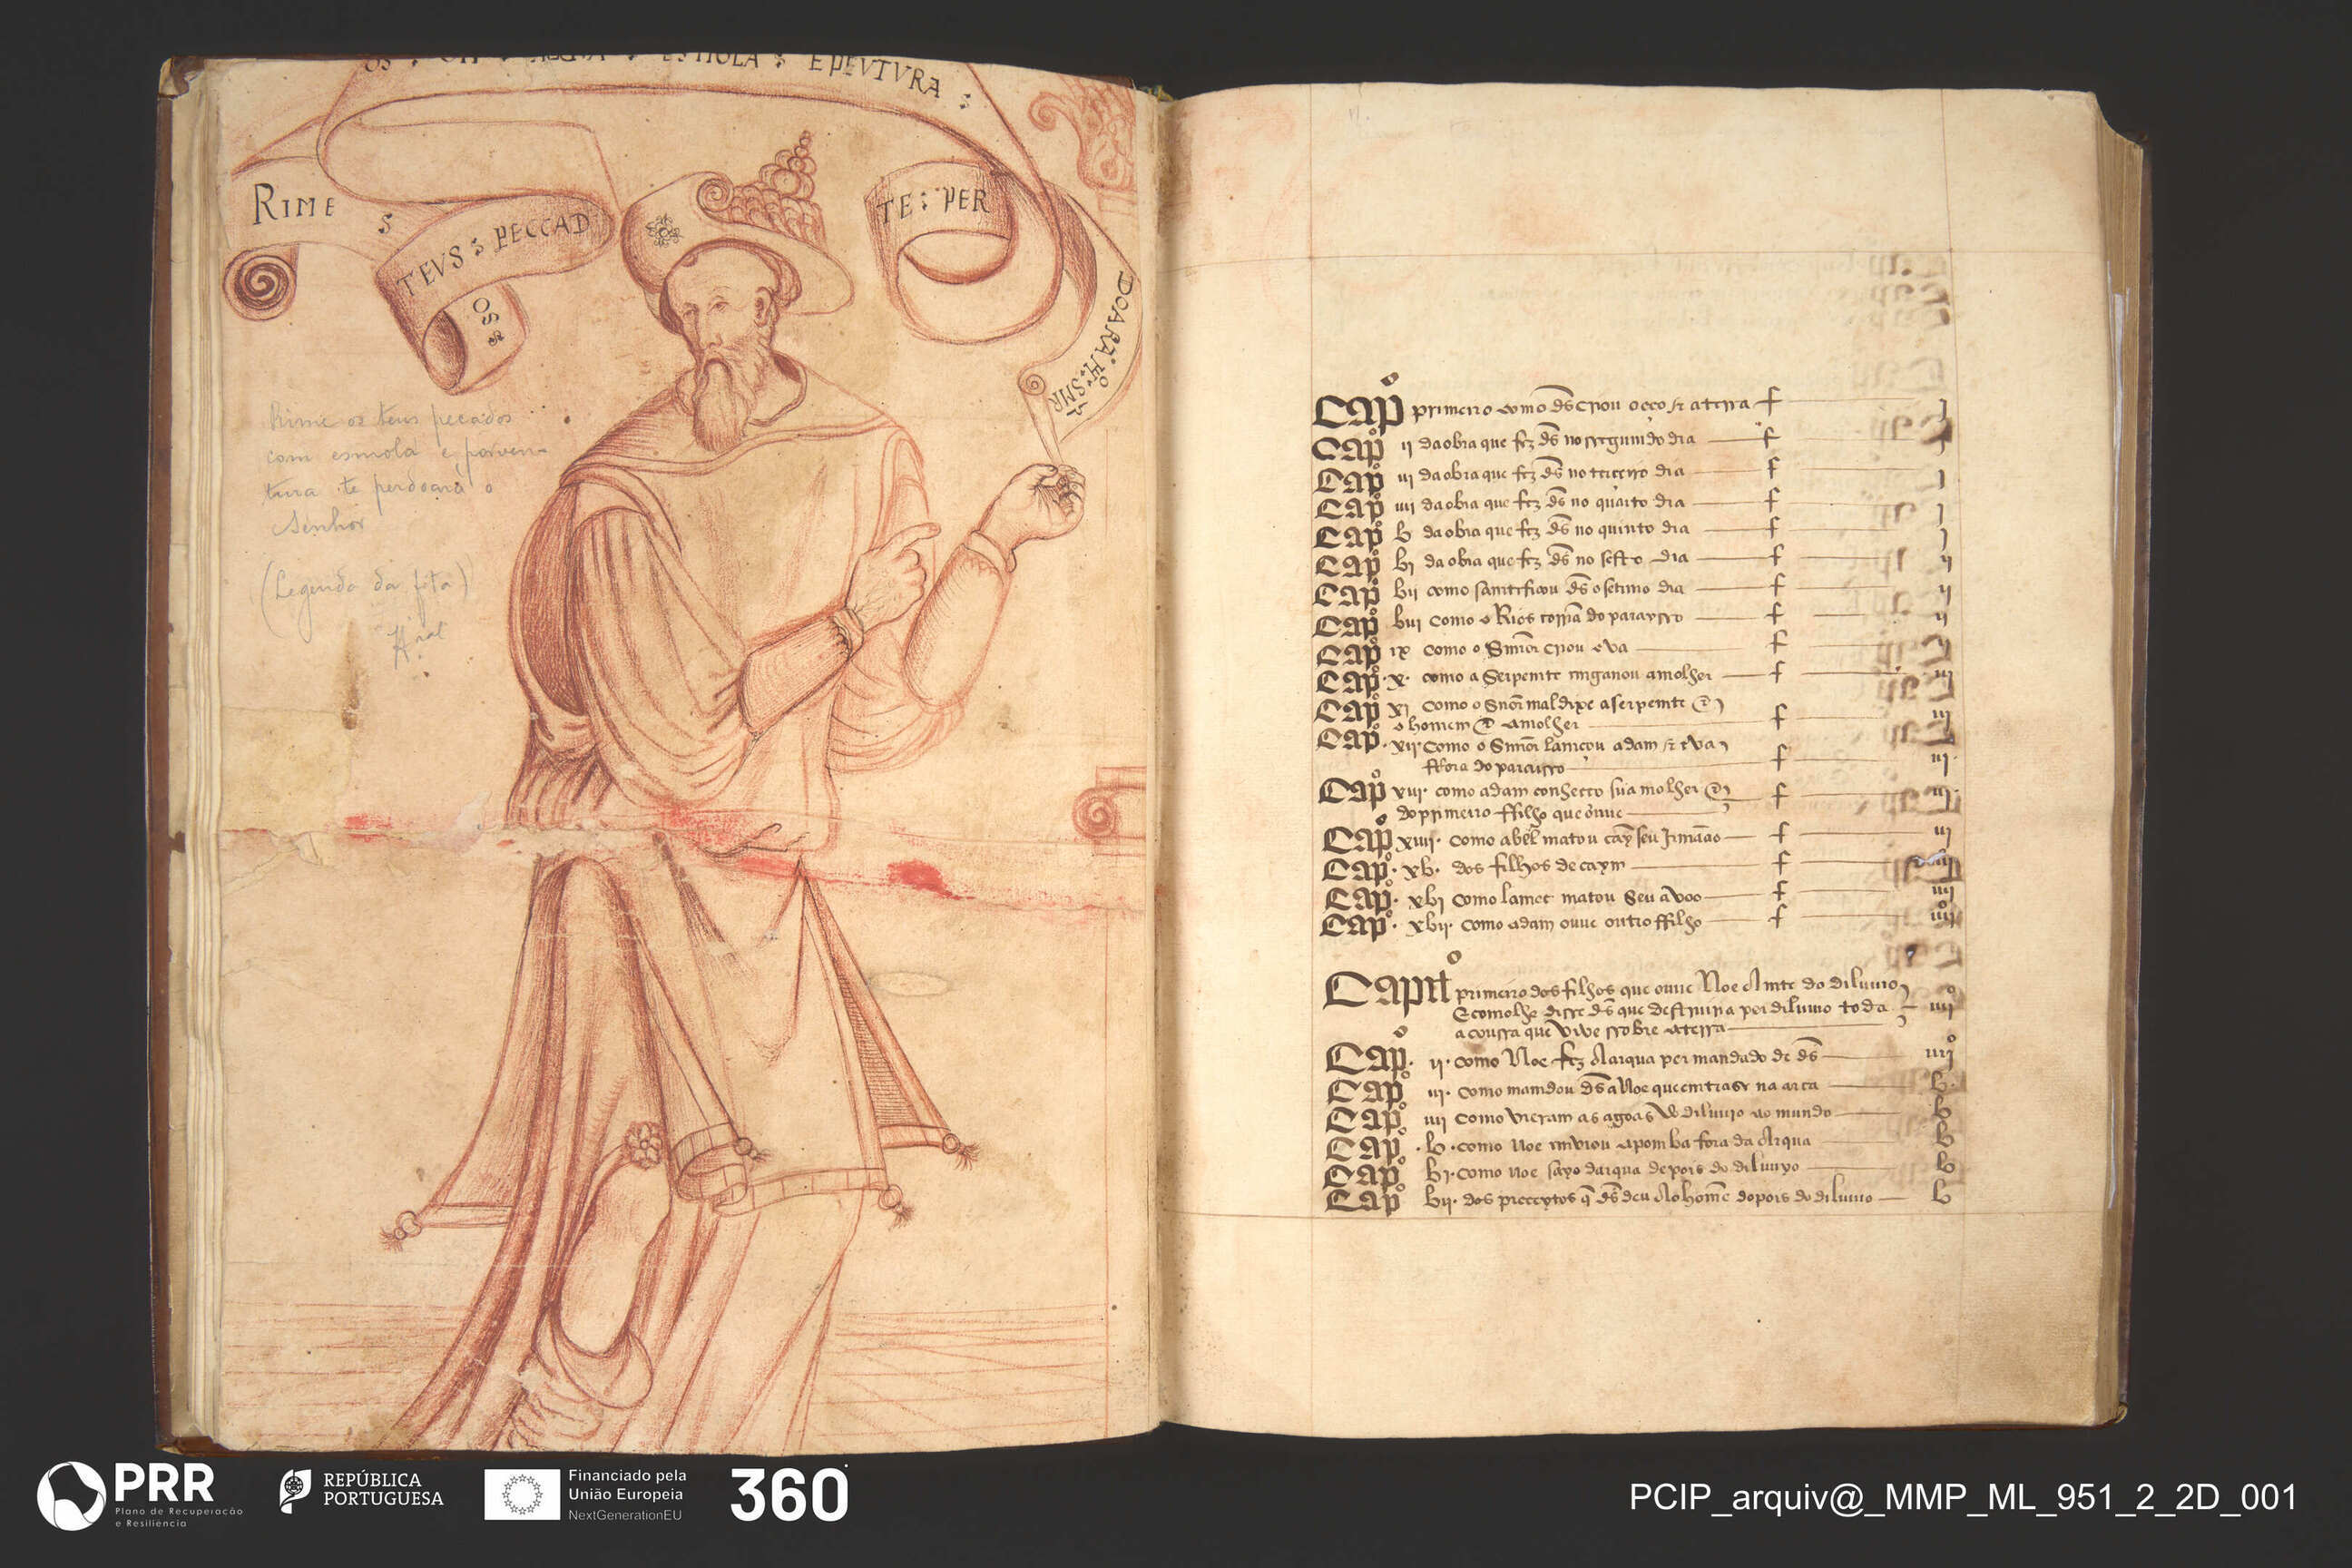 RIME
S
TEVS : PECCAD
OS :
ESMOLA : E PEVTVRA :
TE : PER
DOARA : HO : SNR
Rime os teus pecados
com esmola e porven-
tura te perdoará o
Senhor
(Legenda da fita)
Capo primeiro como ds criou o ceo & a terra f j
Capo ij da obra que fez ds no segumdo dia f j
Capo iij da obra que fez ds no terceiro dia f j
Capo iiij da obra que fez ds no quarto dia f j
Capo b da obra que fez ds no quinto dia f j
Capo bj da obra que fez ds no sesto dia f ij
Capo bij como samtificou ds o setimo dia f ij
Capo biij como os Rios corriã do parayso f ij
Capo ix como o Senhor criou eva f ij
Capo x como a Serpemte emganou a molher f iij
Capo xj como o Snor maldixe a serpemte &
o homem & a molher f iij
Capo xij Como o Senhor lamcou adam & eva
ffora do paraisso f iij
Capo xiij como adam conheceo sua molher &
do primeiro ffilho que ouue f iij
Capo xiiij como abel matou cay seu Irmaão f iij
Capo xb dos filhos de caym f iiij
Capo xbj como lamec matou seu avoo f iiij
Capo xbij como adam ouue outro ffilho f iiijo
Capitlo primeiro dos filhos que ouue Noe Amte do diluuio
E como lhe disse ds que destruiria per diluuio toda iiijo
a coussa que vive ssobre a terra
Capo ij como Noe fez A arqua per mandado de ds iiijo
Capo iij como mamdou ds a Noe que emtrase na arca b
Capo iiij como vieram as agoas do diluuio ao mundo b
Capo b como noe emviou a pomba fora da Arqua b
Capo bj como noe sayo darqua depois do diluuyo b
Capo bij dos preceytos q ds deu Ao home depois do diluuio b
PRR
Plano de Recuperação
e Resiliência
REPÚBLICA
PORTUGUESA
Financiado pela
União Europeia
NextGenerationEU
360
PCIP_arquiv@_MMP_ML_951_2_2D_001